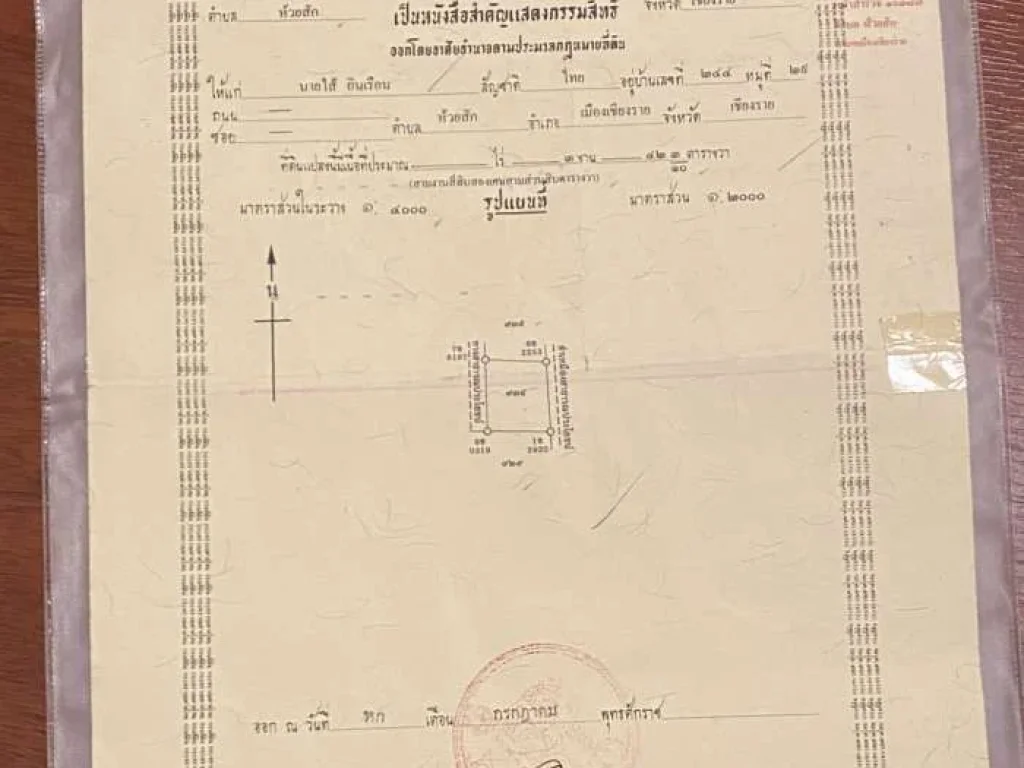 ตำบล ห้วยสัก
เป็นหนังสือสำคัญแสดงกรรมสิทธิ์
จังหวัด เชียงราย
ออกโดยอาศัยอำนาจตามประมวลกฎหมายที่ดิน
ให้แก่ นายใส้ ยินเรือน สัญชาติ ไทย อยู่บ้านเลขที่ ๒๔๔ หมู่ที่ ๒๕
ถนน —
ซอย — ตำบล ห้วยสัก อำเภอ เมืองเชียงราย จังหวัด เชียงราย
ที่ดินแปลงนี้มีเนื้อที่ประมาณ ไร่ ๓ งาน ๔๒ ๓/๑๐ ตารางวา
(สามงานสี่สิบสองเศษสามส่วนสิบตารางวา)
มาตราส่วนในระวาง ๑: ๔๐๐๐ รูปแผนที่ มาตราส่วน ๑:๒๐๐๐
น
ทางสาธารณประโยชน์
ออก ณ วันที่ หก เดือน กรกฎาคม พุทธศักราช